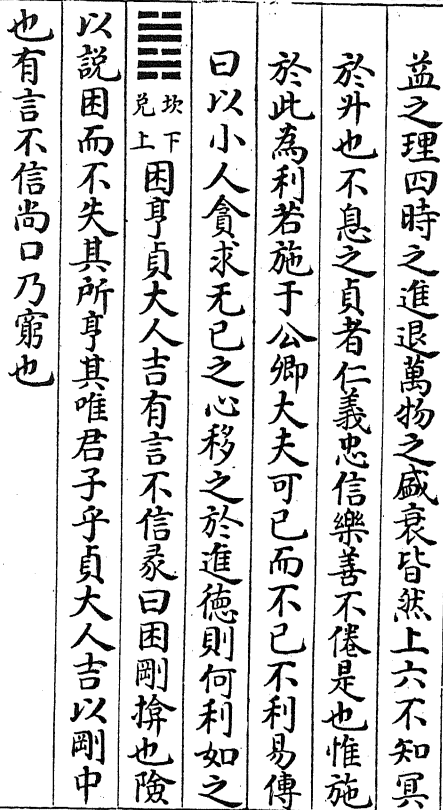 益之理四時之進退萬物之盛衰皆然上六不知冥
於升也不息之貞者仁義忠信樂善不倦是也惟施
於此為利若施于公卿大夫可已而不已不利易傳
曰以小人貪求无已之心移之於進德則何利如之
䷮坎下兌上困亨貞大人吉有言不信彖曰困剛揜也險
以說困而不失其所亨其唯君子乎貞大人吉以剛中
也有言不信尚口乃窮也